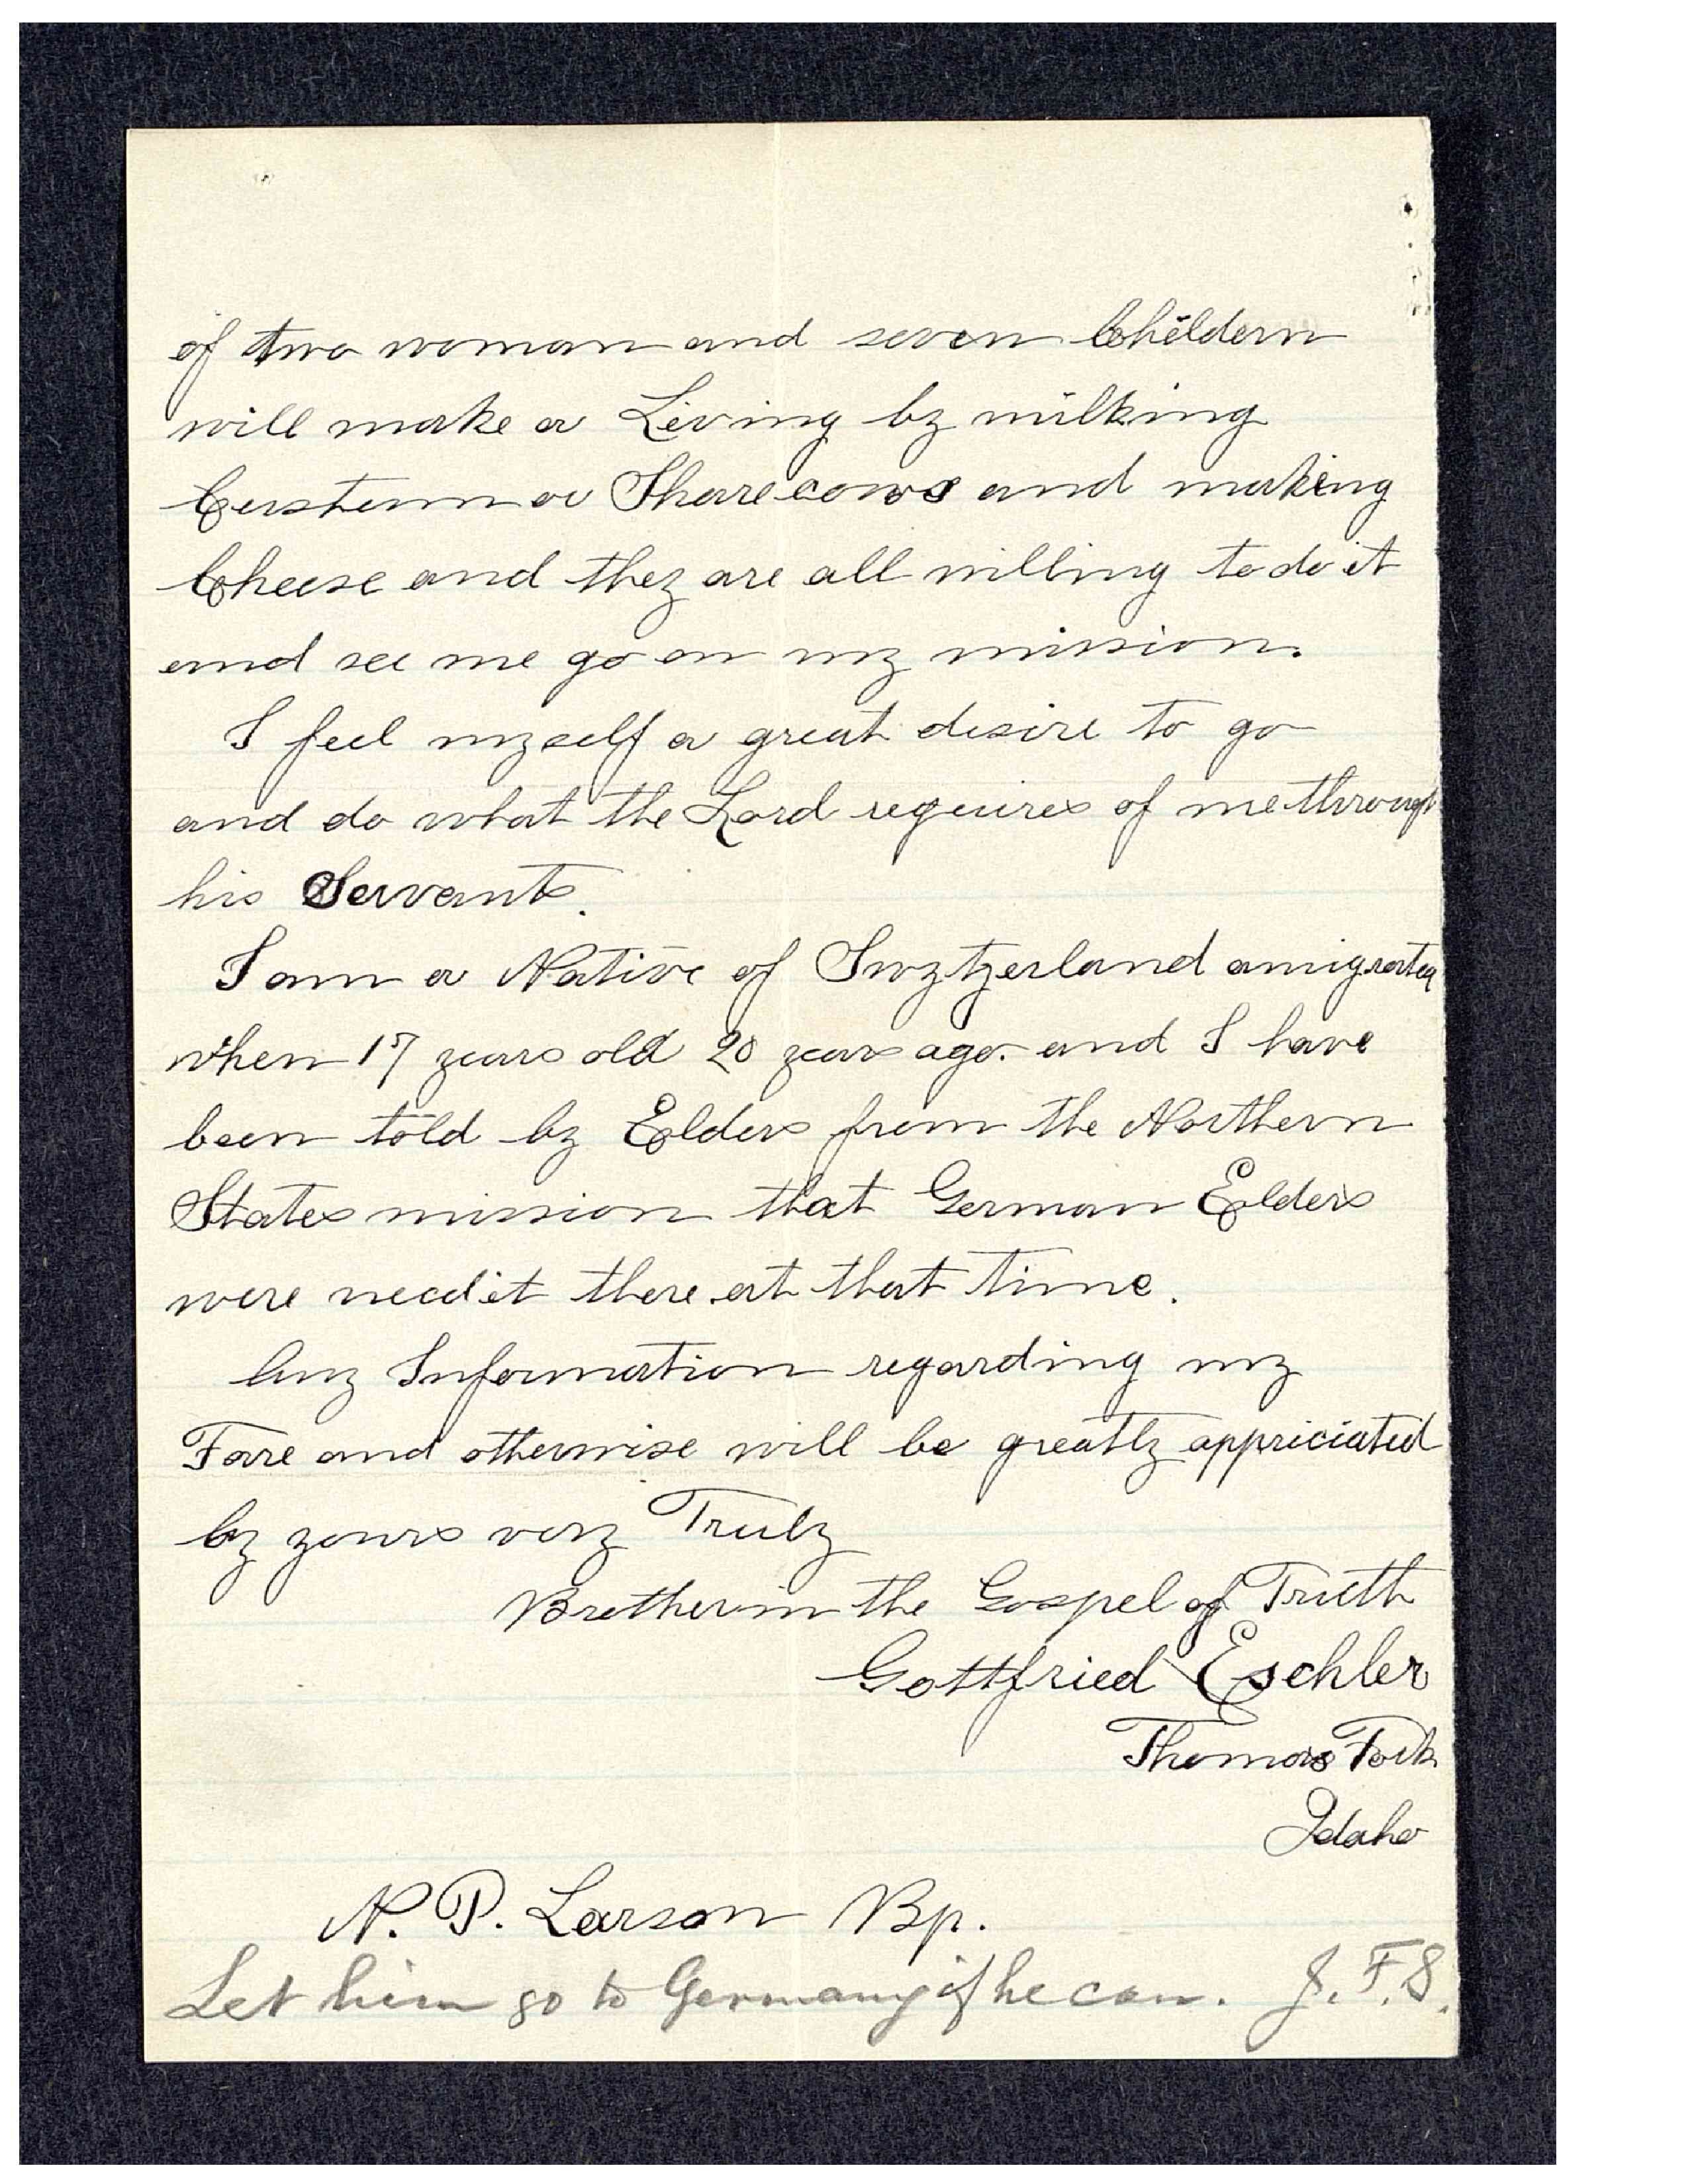 of two woman and seven Childern
will make a Living bz milking
Custum or Sharecows and making
Cheese and thez are all willing to do it
and see me go on mz mission.
I feel mzself a great desire to go
and do what the Lord requires of me through
his Servants.
I am a Native of Swztzerland amigrated
when 17 zears old 20 zears ago. and I have
been told bz Elders from the Northern
States mission that German Elders
were needit there at that time.
Anz Information regarding mz
Fare and otherwise will be greatlz appriciated
bz zours verz Trulz
Brother in the Gospel of Truth
Gottfried Eschler
Thomas Fork
Idaho
N. P. Larson Bp.
Let him go to Germany if he can. J. F. S.